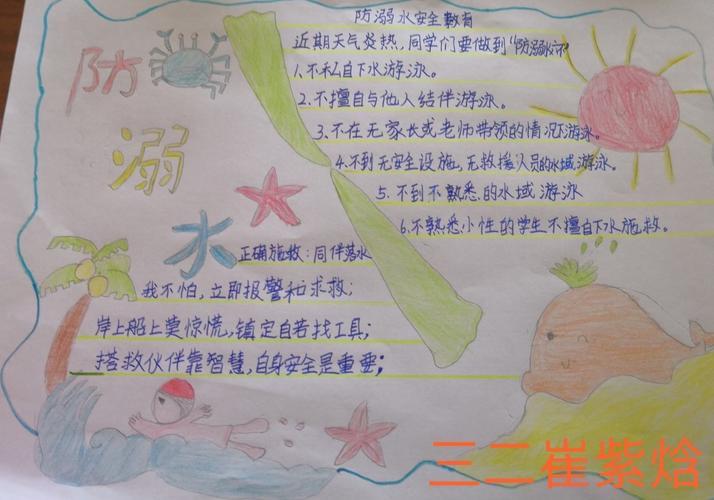 防溺水
防溺水安全教育
近期天气炎热,同学们要做到"防溺水六不"
1.不私自下水游泳。
2.不擅自与他人结伴游泳。
3.不在无家长或老师带领的情况下游泳。
4.不到无安全设施,无救援人员的水域游泳。
5.不到不熟悉的水域游泳
6.不熟悉水性的学生不擅自下水施救。
正确施救:同伴落水
我不怕,立即报警和求救;
岸上船上莫惊慌,镇定自若找工具;
搭救伙伴靠智慧,自身安全是重要;
三二崔紫焓